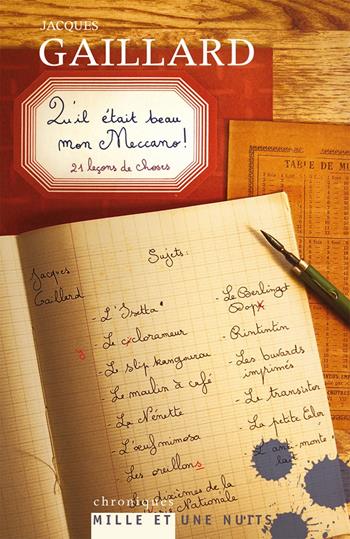 JACQUES
GAILLARD
Qu'il était beau
mon Meccano !
21 leçons de choses
TABLE DE MU
Jacques
Gaillard
Sujets :
- L'Isetta
y
- Le ciclorameur
- Le slip kangourou
- Le moulin à café
- La Nénette
- L'œuf mimosa
- Les oreillons
- Le dixième de la
Nationale
- Le Berlingot
Dopx
- Rintintin
- Les buvards
imprimés
- Le transistor
- La petite Euler
- L'anti-monte-
lait
chroniques
MILLE ET UNE NUITS